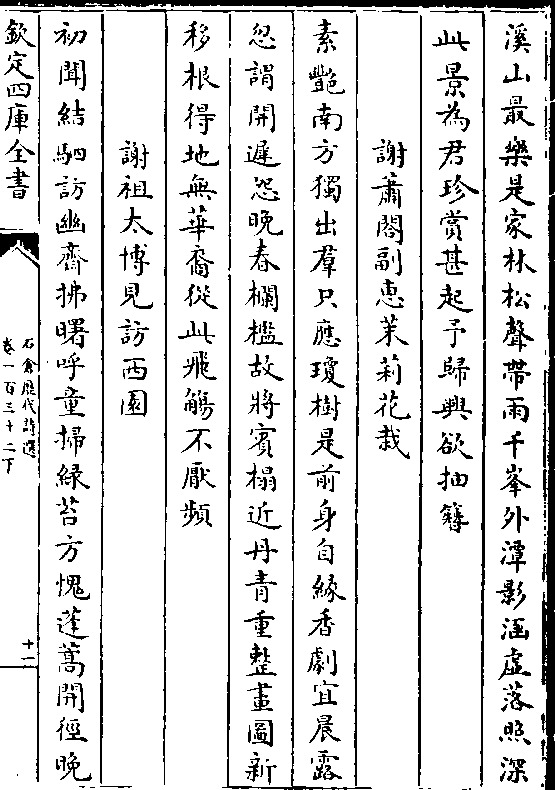 溪山最樂是家林松聲帶雨千峯外潭影涵虛落照深
此景為君珍賞甚起予歸興欲抽簪
謝蕭閣副惠茉莉花栽
素艷南方獨出羣只應瓊樹是前身自緣香劇宜晨露
忽謂開遲怨晚春欄檻故將賓榻近丹青重整畫圖新
移根得地無華裔從此飛觴不厭頻
謝祖太博見訪西園
初聞結駟訪幽齋拂曙呼童掃緑苔方愧蓬蒿開徑晚
欽定四庫全書
石倉歷代詩選
卷一百三十二下
十一